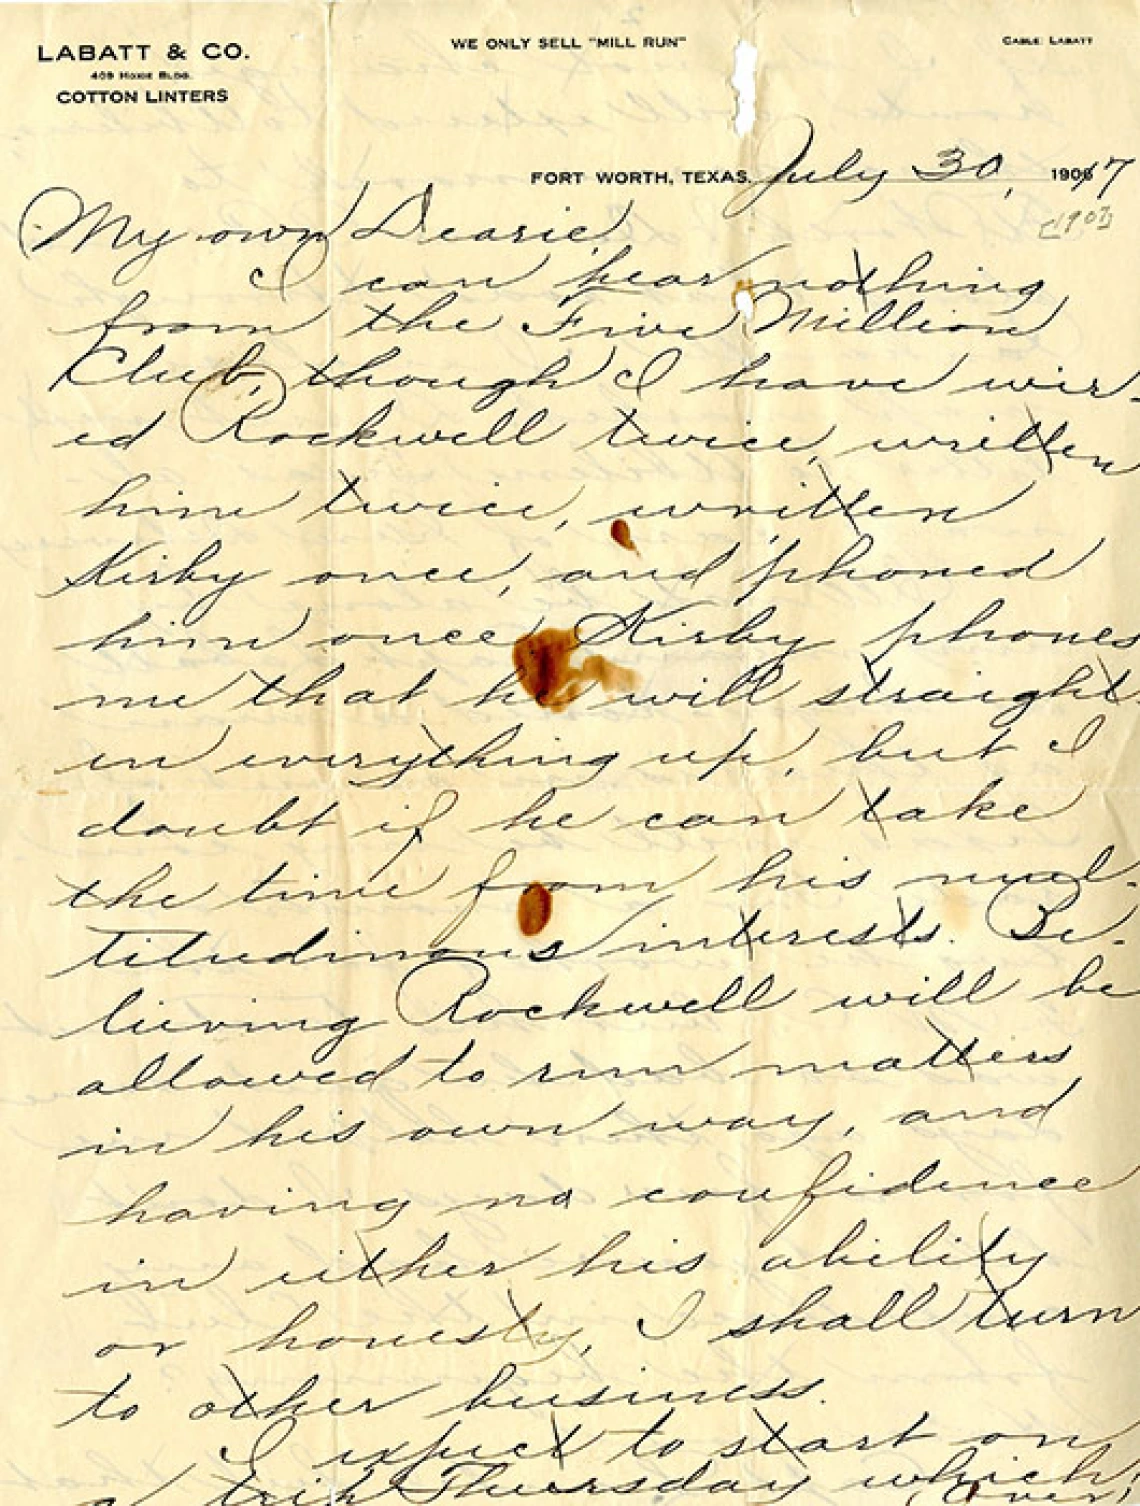 LABATT & CO.
409 HOXIE BLDG.
COTTON LINTERS
WE ONLY SELL "MILL RUN"
CABLE: LABATT
FORT WORTH, TEXAS. July 30, 19067
[1907]
My own Dearie,
I can hear nothing
from the Five Million
Club, though I have wir-
ed Rockwell twice, written
him twice, written
Kirby once, and 'phoned
him once. Kirby phones
me that he will straight-
en everything up, but I
doubt if he can take
the time from his mul-
titudinous interests. Be-
lieving Rockwell will be
allowed to run matters
in his own way, and
having no confidence
in either his ability
or honesty, I shall turn
to other business.
I expect to start on
a trip Thursday which
(Over)